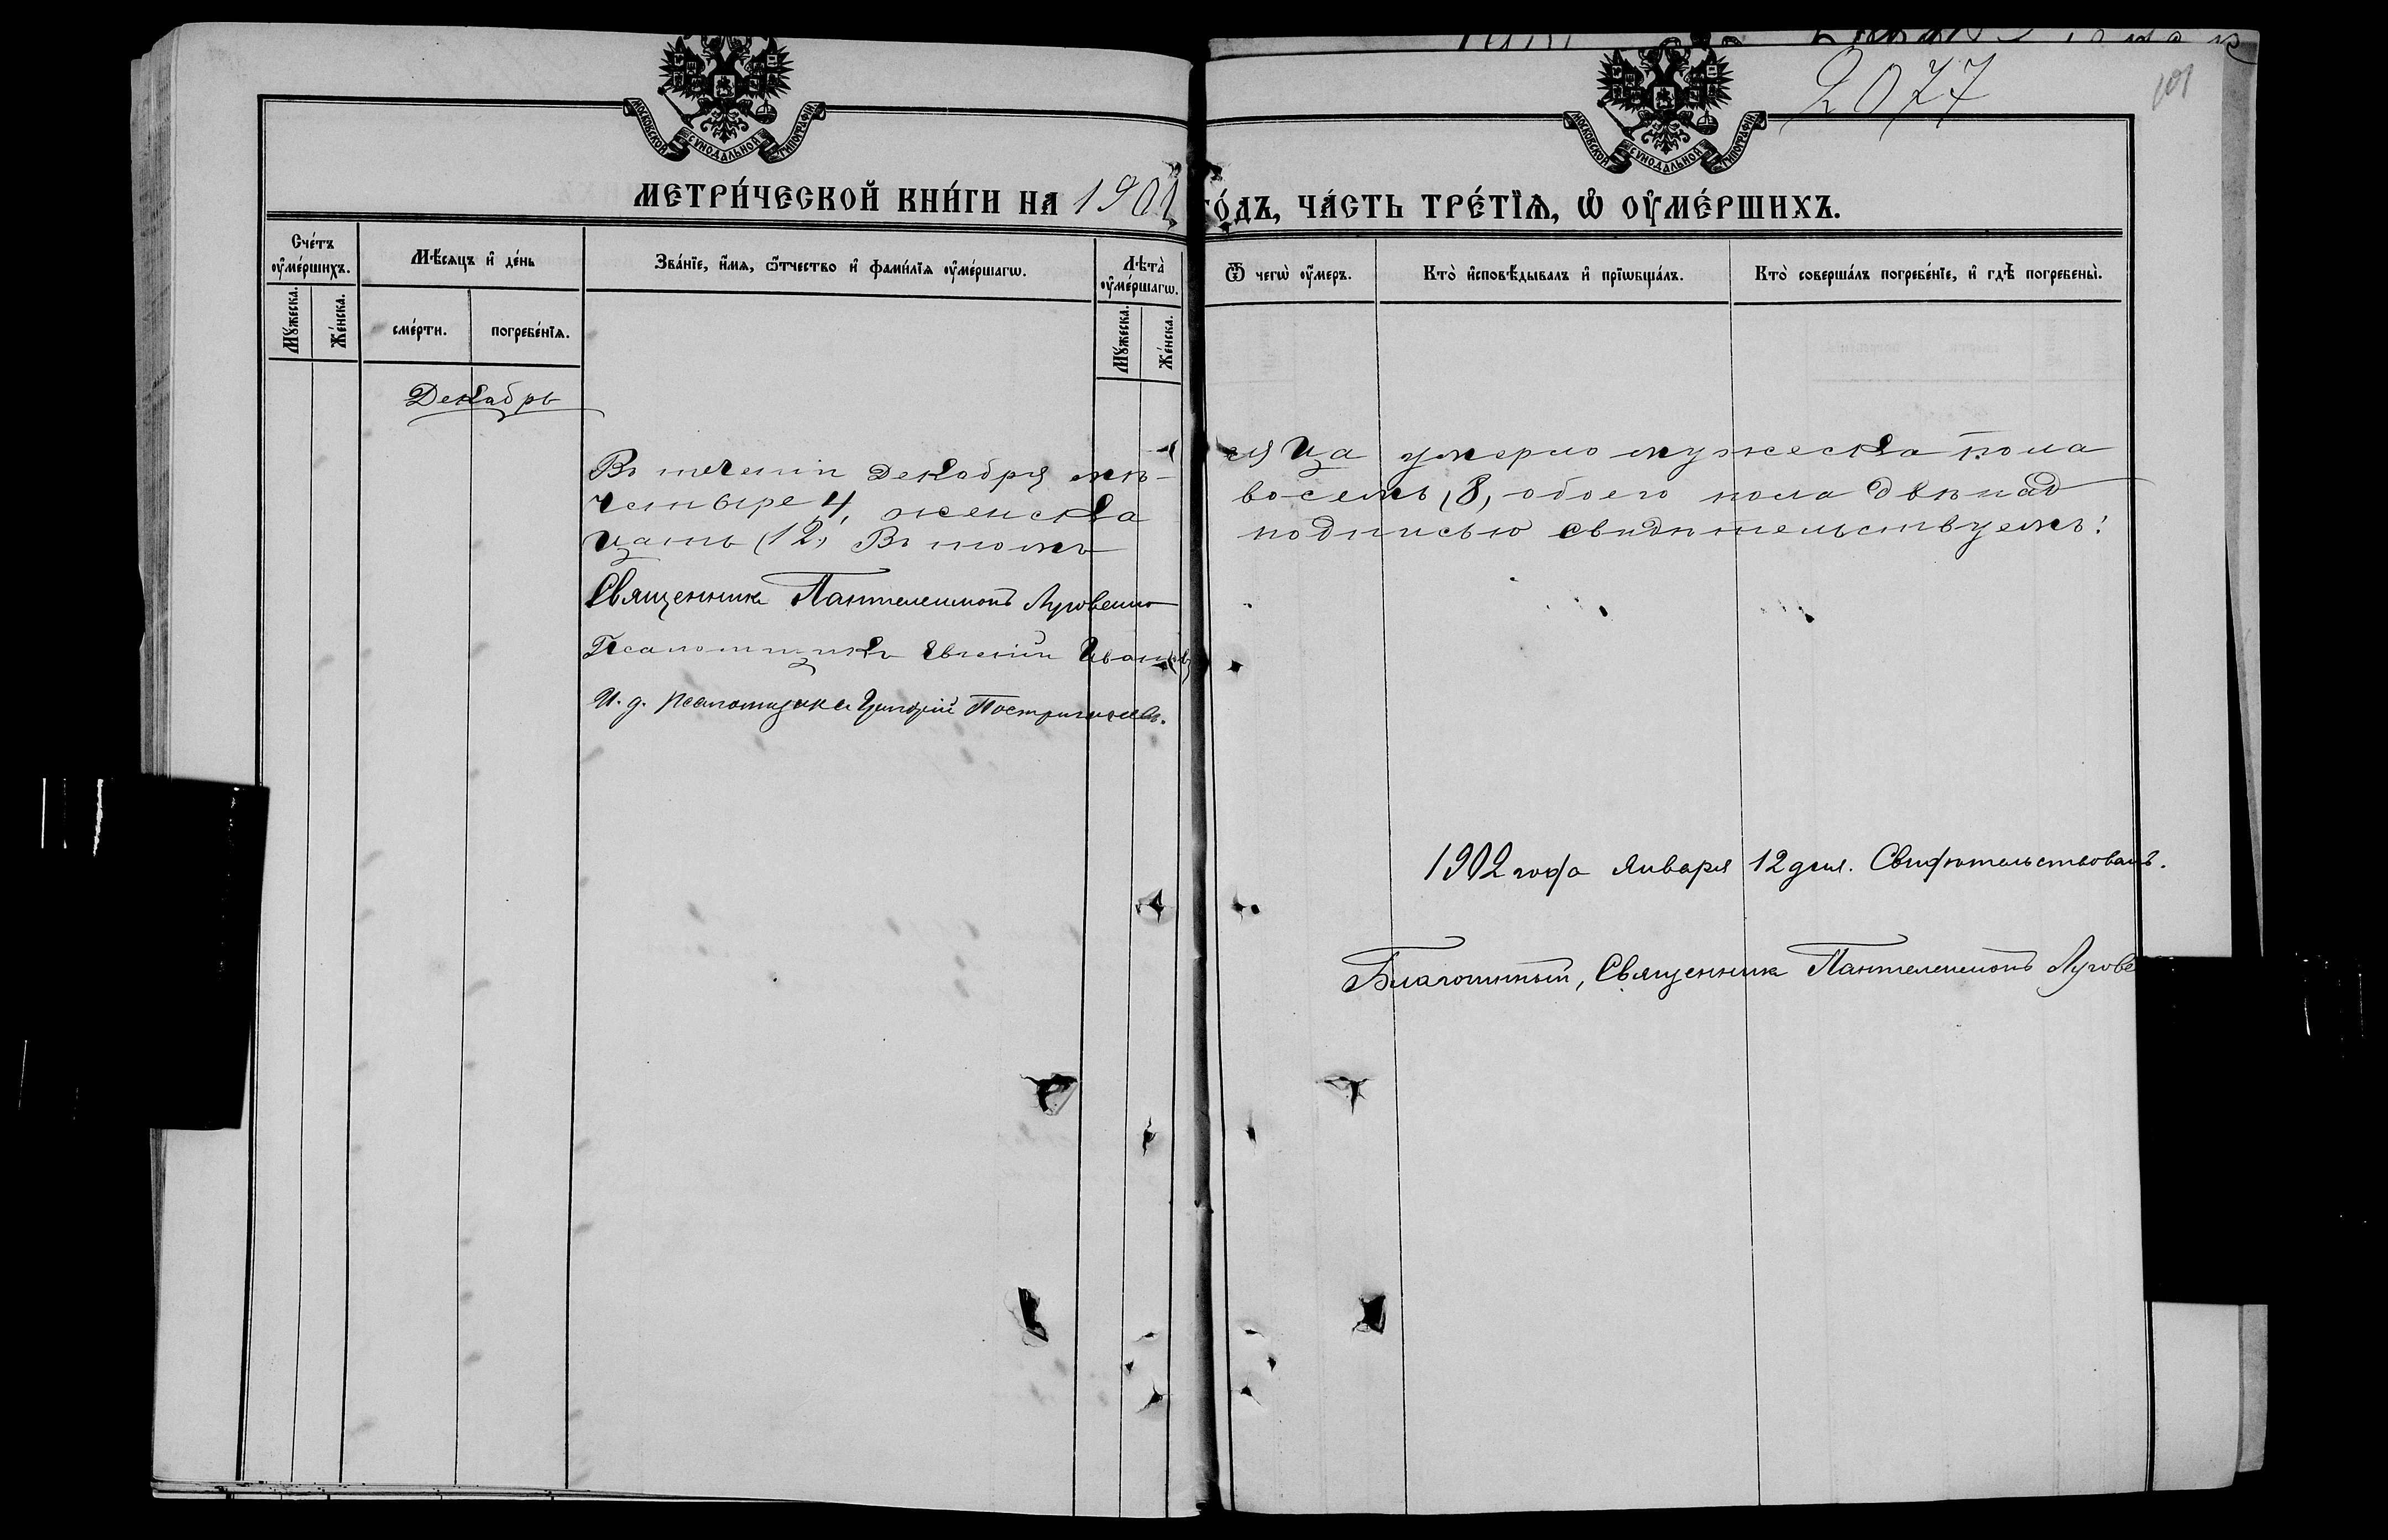 2077
101
МОСКОВСКОЙ СѴНОДАЛЬНОЙ ТИПОГРАФІИ
МОСКОВСКОЙ СѴНОДАЛЬНОЙ ТИПОГРАФІИ
МЕТРИ́ЧЕСКОЙ КНИ́ГИ НА 1901 ГО́ДЪ, ЧА́СТЬ ТРЕ́ТІѦ, Ѡ҆ ОУ҆МЕ́РШИХЪ.
Сче́тъ оу҆ме́ршихъ.
Мꙋ́жеска.
Же́нска.
Мѣ́сяцъ и҆ де́нь
сме́рти.
погребе́нїѧ.
Зва́нїе, и҆́мѧ, ѿ́тчество и҆ фами́лїѧ оу҆ме́ршагѡ.
Лѣта̀ оу҆ме́ршагѡ.
Мꙋ́жеска.
Же́нска.
Ѿ чегѡ̀ оу҆́меръ.
Кто̀ и҆сповѣ́дывалъ и҆ прїѡбща́лъ.
Кто̀ соверша́лъ погребе́нїе, и҆ гдѣ̀ погребены̀.
Декабрь
Въ теченіи Декабря мѣ-сяца умерло мужеска пола
четыре 4, женска восемь (8), обоего пола двѣнад
цать (12). Въ томъ подписью свидѣтельствуемъ:
Священникъ Пантелеимонъ Луговенко
Псаломщикъ Евгеній Ивановъ
И. д. псаломщика Григорій
1902 года Января 12 дня. Свидѣтельствовалъ.
Благочинный, Священникъ Пантелеимонъ Лугове